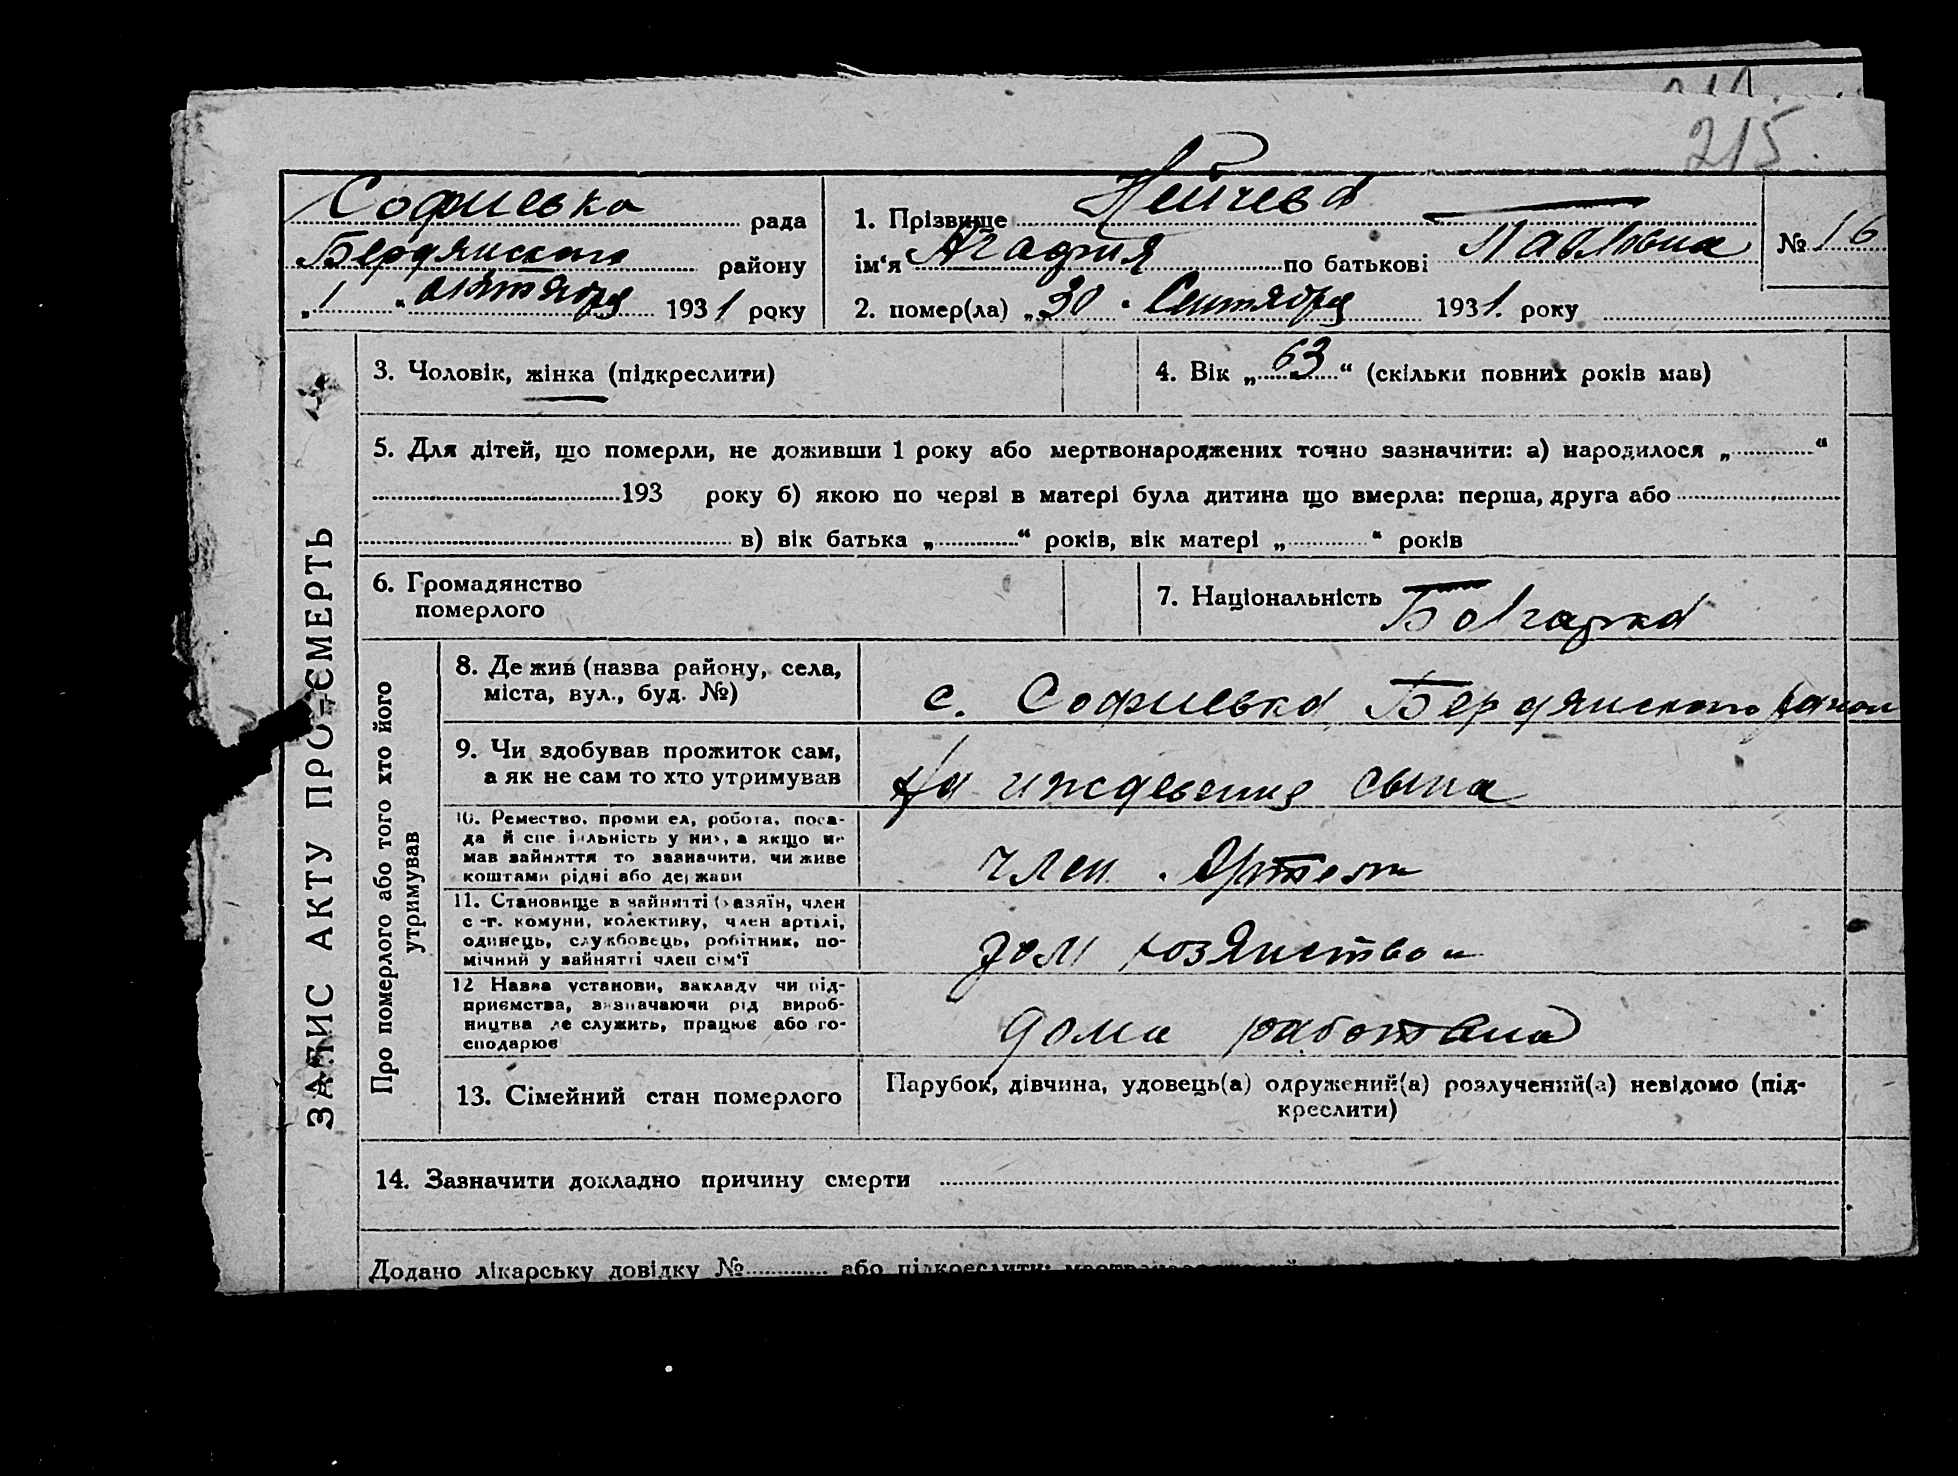 215
Софиевка рада
Бердянского району
„1“ октября 1931 року
1. Прізвище Нейчева
ім‘я Агафия по батькові Павловна
№ 16
2. помер(ла) „30“ Сентября 1931 року
ЗАПИС АКТУ ПРО СМЕРТЬ
3. Чоловік, жінка (підкреслити)
4. Вік „63“ (скільки повних років мав)
5. Для дітей, що померли, не доживши 1 року або мертвонароджених точно зазначити: а) народилося „ “
193 року б) якою по черзі в матері була дитина що вмерла: перша, друга або
в) вік батька „ “ років, вік матері „ “ років
6. Громадянство
померлого
7. Національність Болгарка
Про померлого або того хто його
утримував
8. Де жив (назва району, села,
міста, вул., буд. №)
с. Софиевка Бердянского район
9. Чи здобував прожиток сам,
а як не сам то хто утримував
На иждевения сына
10. Ремество, проми ел, робота, поса-
да й спе іальність у них, а якщо не
мав зайняття то зазначити, чи живе
коштами рідні або держави
член Артели
11. Становище в зайнятті (хазяїн, член
с.-г. комуни, колективу, член артілі,
одинець, службовець, робітник, по-
мічний у зайнятті член сім‘ї
дом хозяиством
12 Назва установи, закладу чи під-
приємства, визначаючи рід вироб-
ництва де служить, працює або го-
сподарює
дома работала
13. Сімейний стан померлого
Парубок, дівчина, удовець(а) одружений(а) розлучений(а) невідомо (під-
креслити)
14. Зазначити докладно причину смерти
Додано лікарську довідку № або підкреслити: